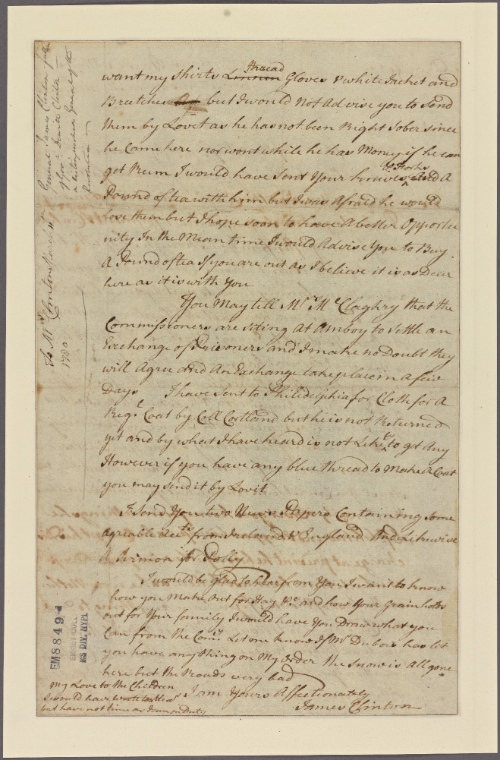 thread
want my Shirts Gloves & white Jacket and
Breeches but I would Not Advise you to Send
them by Lovet as he has not been Right Sober since
he Came here nor wont while he has Money if he can
get Rum I would have Sent Your and a
Pound of tea with him but I was Afraid he would
lose them but I hope soon to have a better Opportu
nity In the Mean time I would Advise You to Buy
a Pound of tea If you are out as I believe it is as Dear
here as it is with You
You May till Mr. McClaghry that the
Commissioners are Siting at Amboy to Settle an
Exchange of Prisoners and I make no Doubt they
will Agree and an Exchange take place in a few
Days I have Sent to Philidelphia for Cloth for a
Regl. Coat by Coll Cortland but he is not Returned
yet and by what I have heard is not Likely to get Any
However if you have any blue thread to Make a Coat
you may send it by Lovit
I Send You two News Papers Containing Some
agreable from Ireland & England And Likewise
a Sermon for Polly
I would be glad to hear from You I want to know
how you Make out for Hay &c and how Your Grain holds
out for Your family I would have You Draw what you
Can from the Let me know If Mr. Dubois has let
you have any thing on My Order the Snow is All gone
here but the Roads very bad
My Love to the Children
I am Yours Affectionately
I would have wrote
but have not time as I am on Duty
James Clinton
To Mrs. Clinton
1780.
General James Clinton
EM8494
MS DIV, NYPL